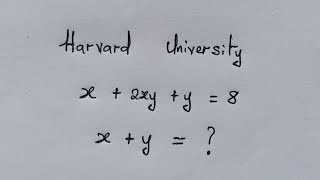 Harvard University
x + 2xy + y = 8
x + y = ?